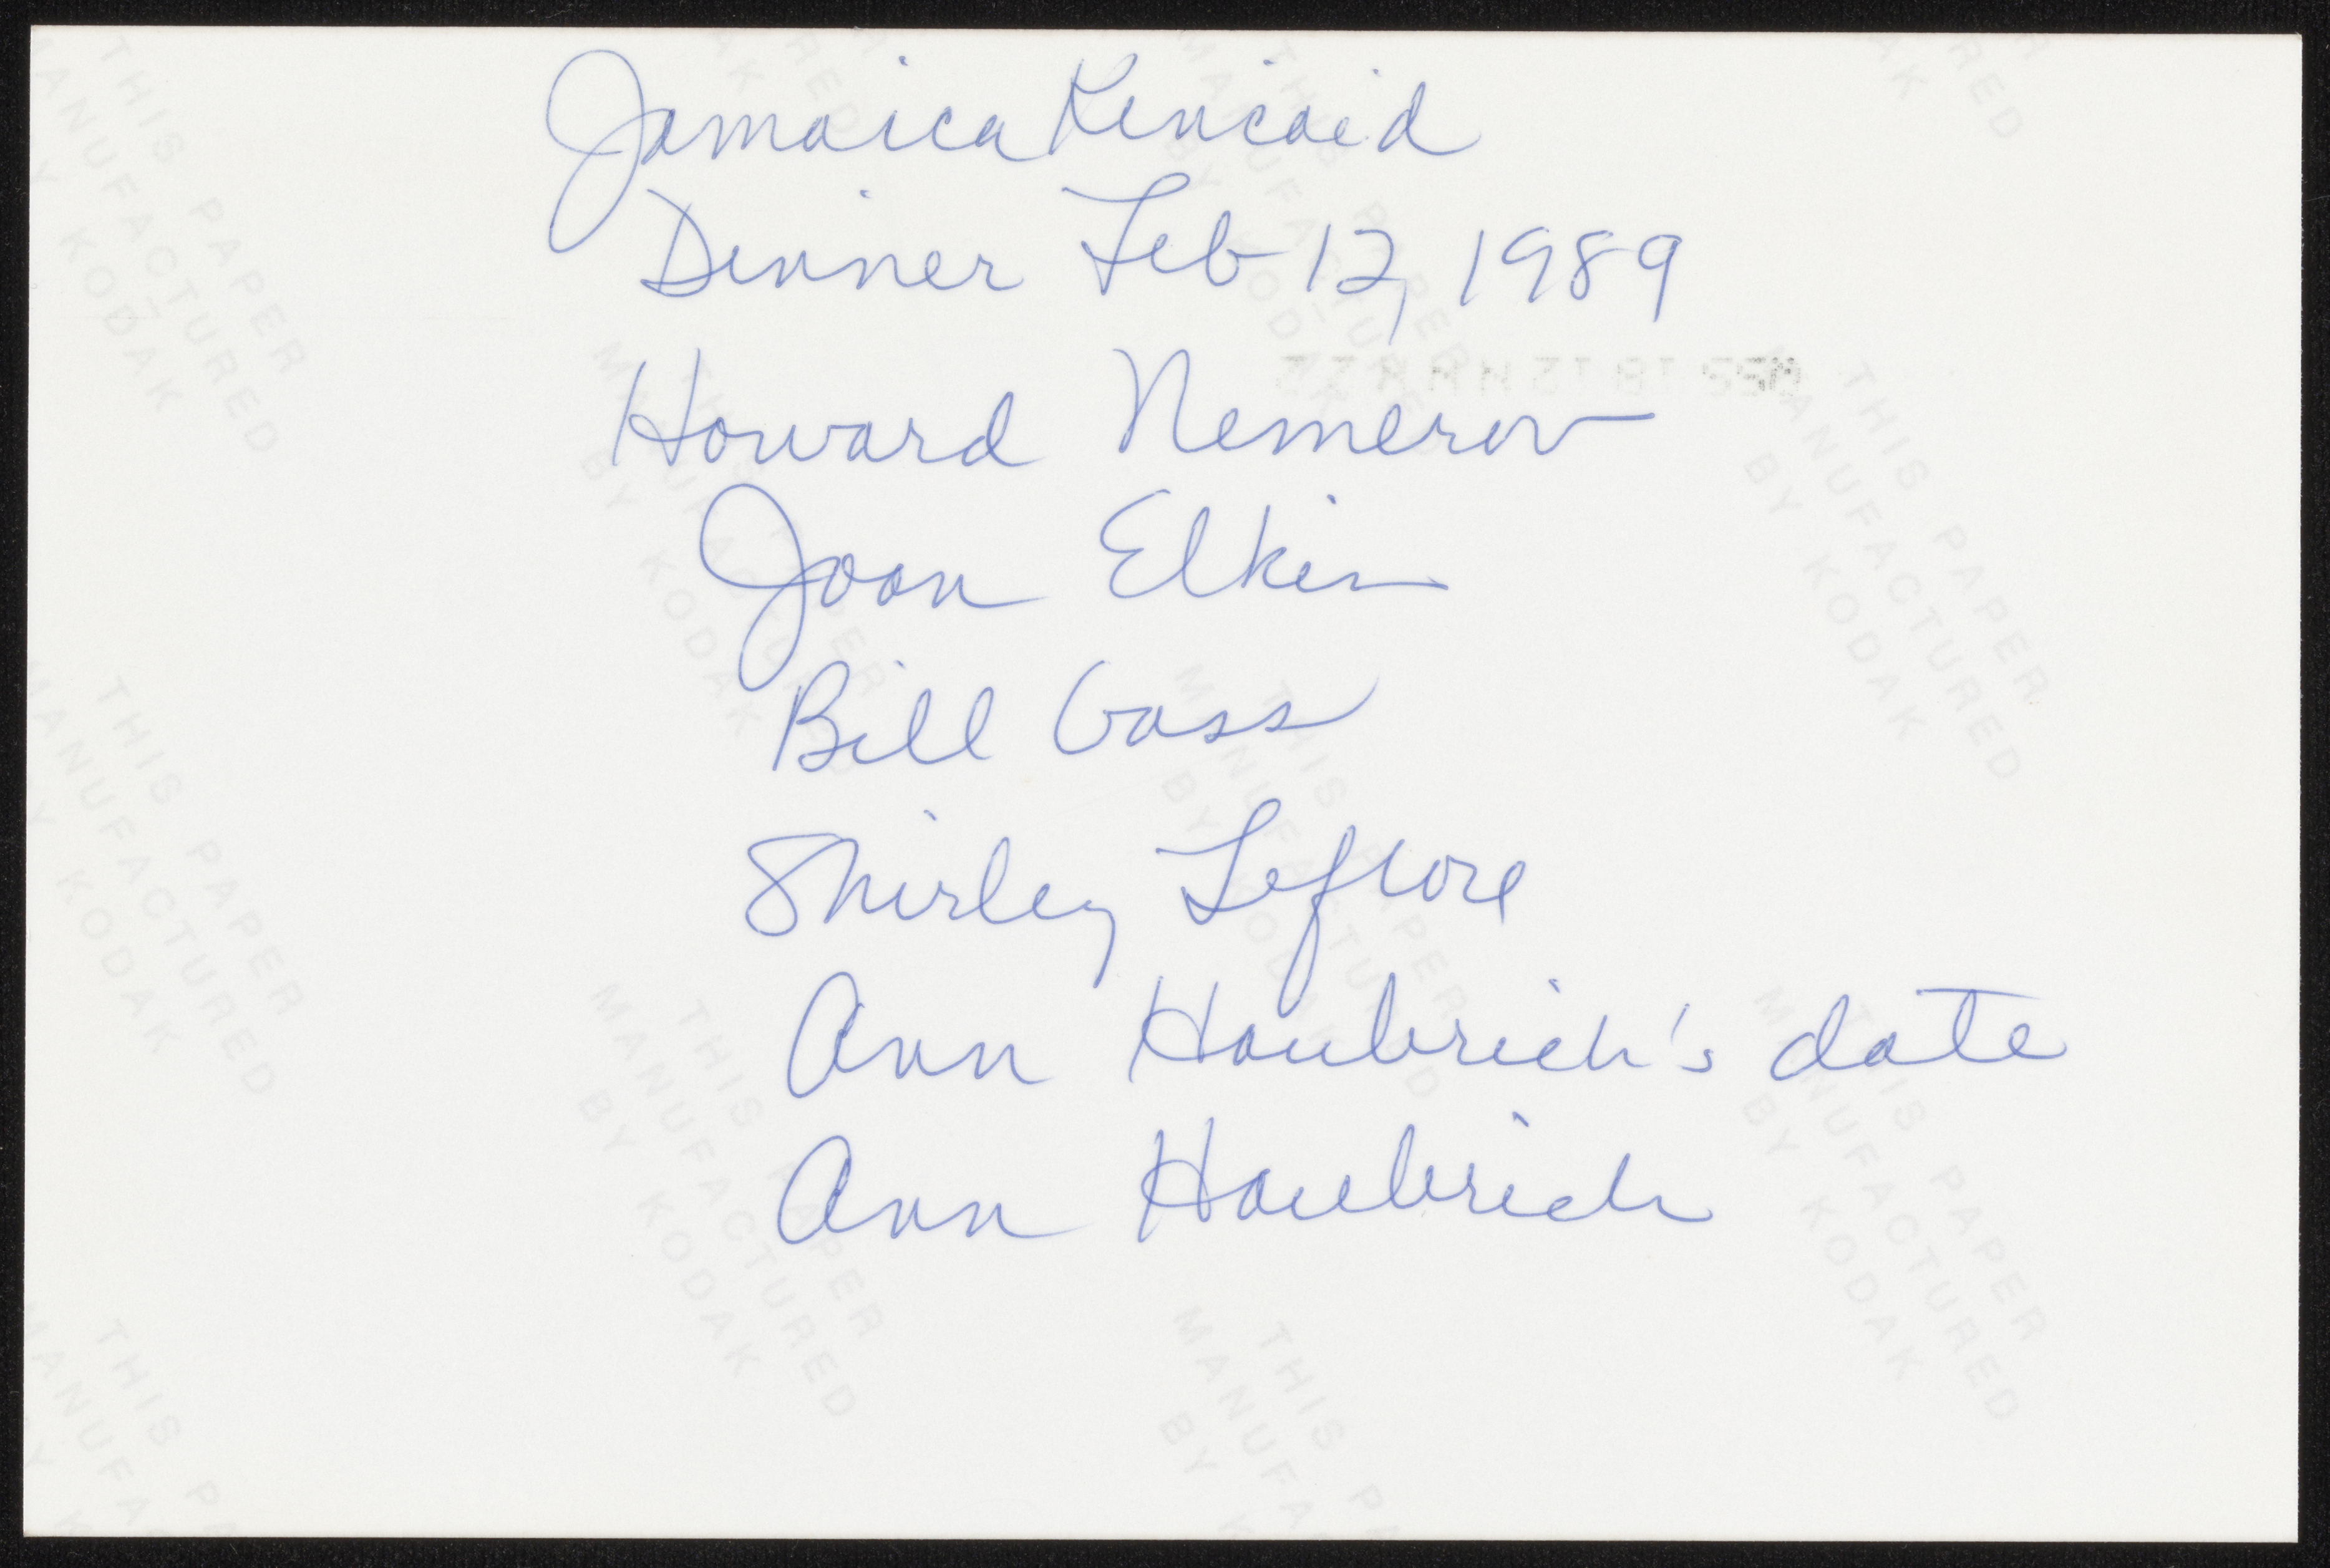 Jamaica Kincaid
Dinner Feb 12, 1989
Howard Nemerov
Joan Elkin
Bill Gass
Shirley Leflore
Ann Haubrich's date
Ann Haubrich
THIS PAPER
MANUFACTURED
BY KODAK